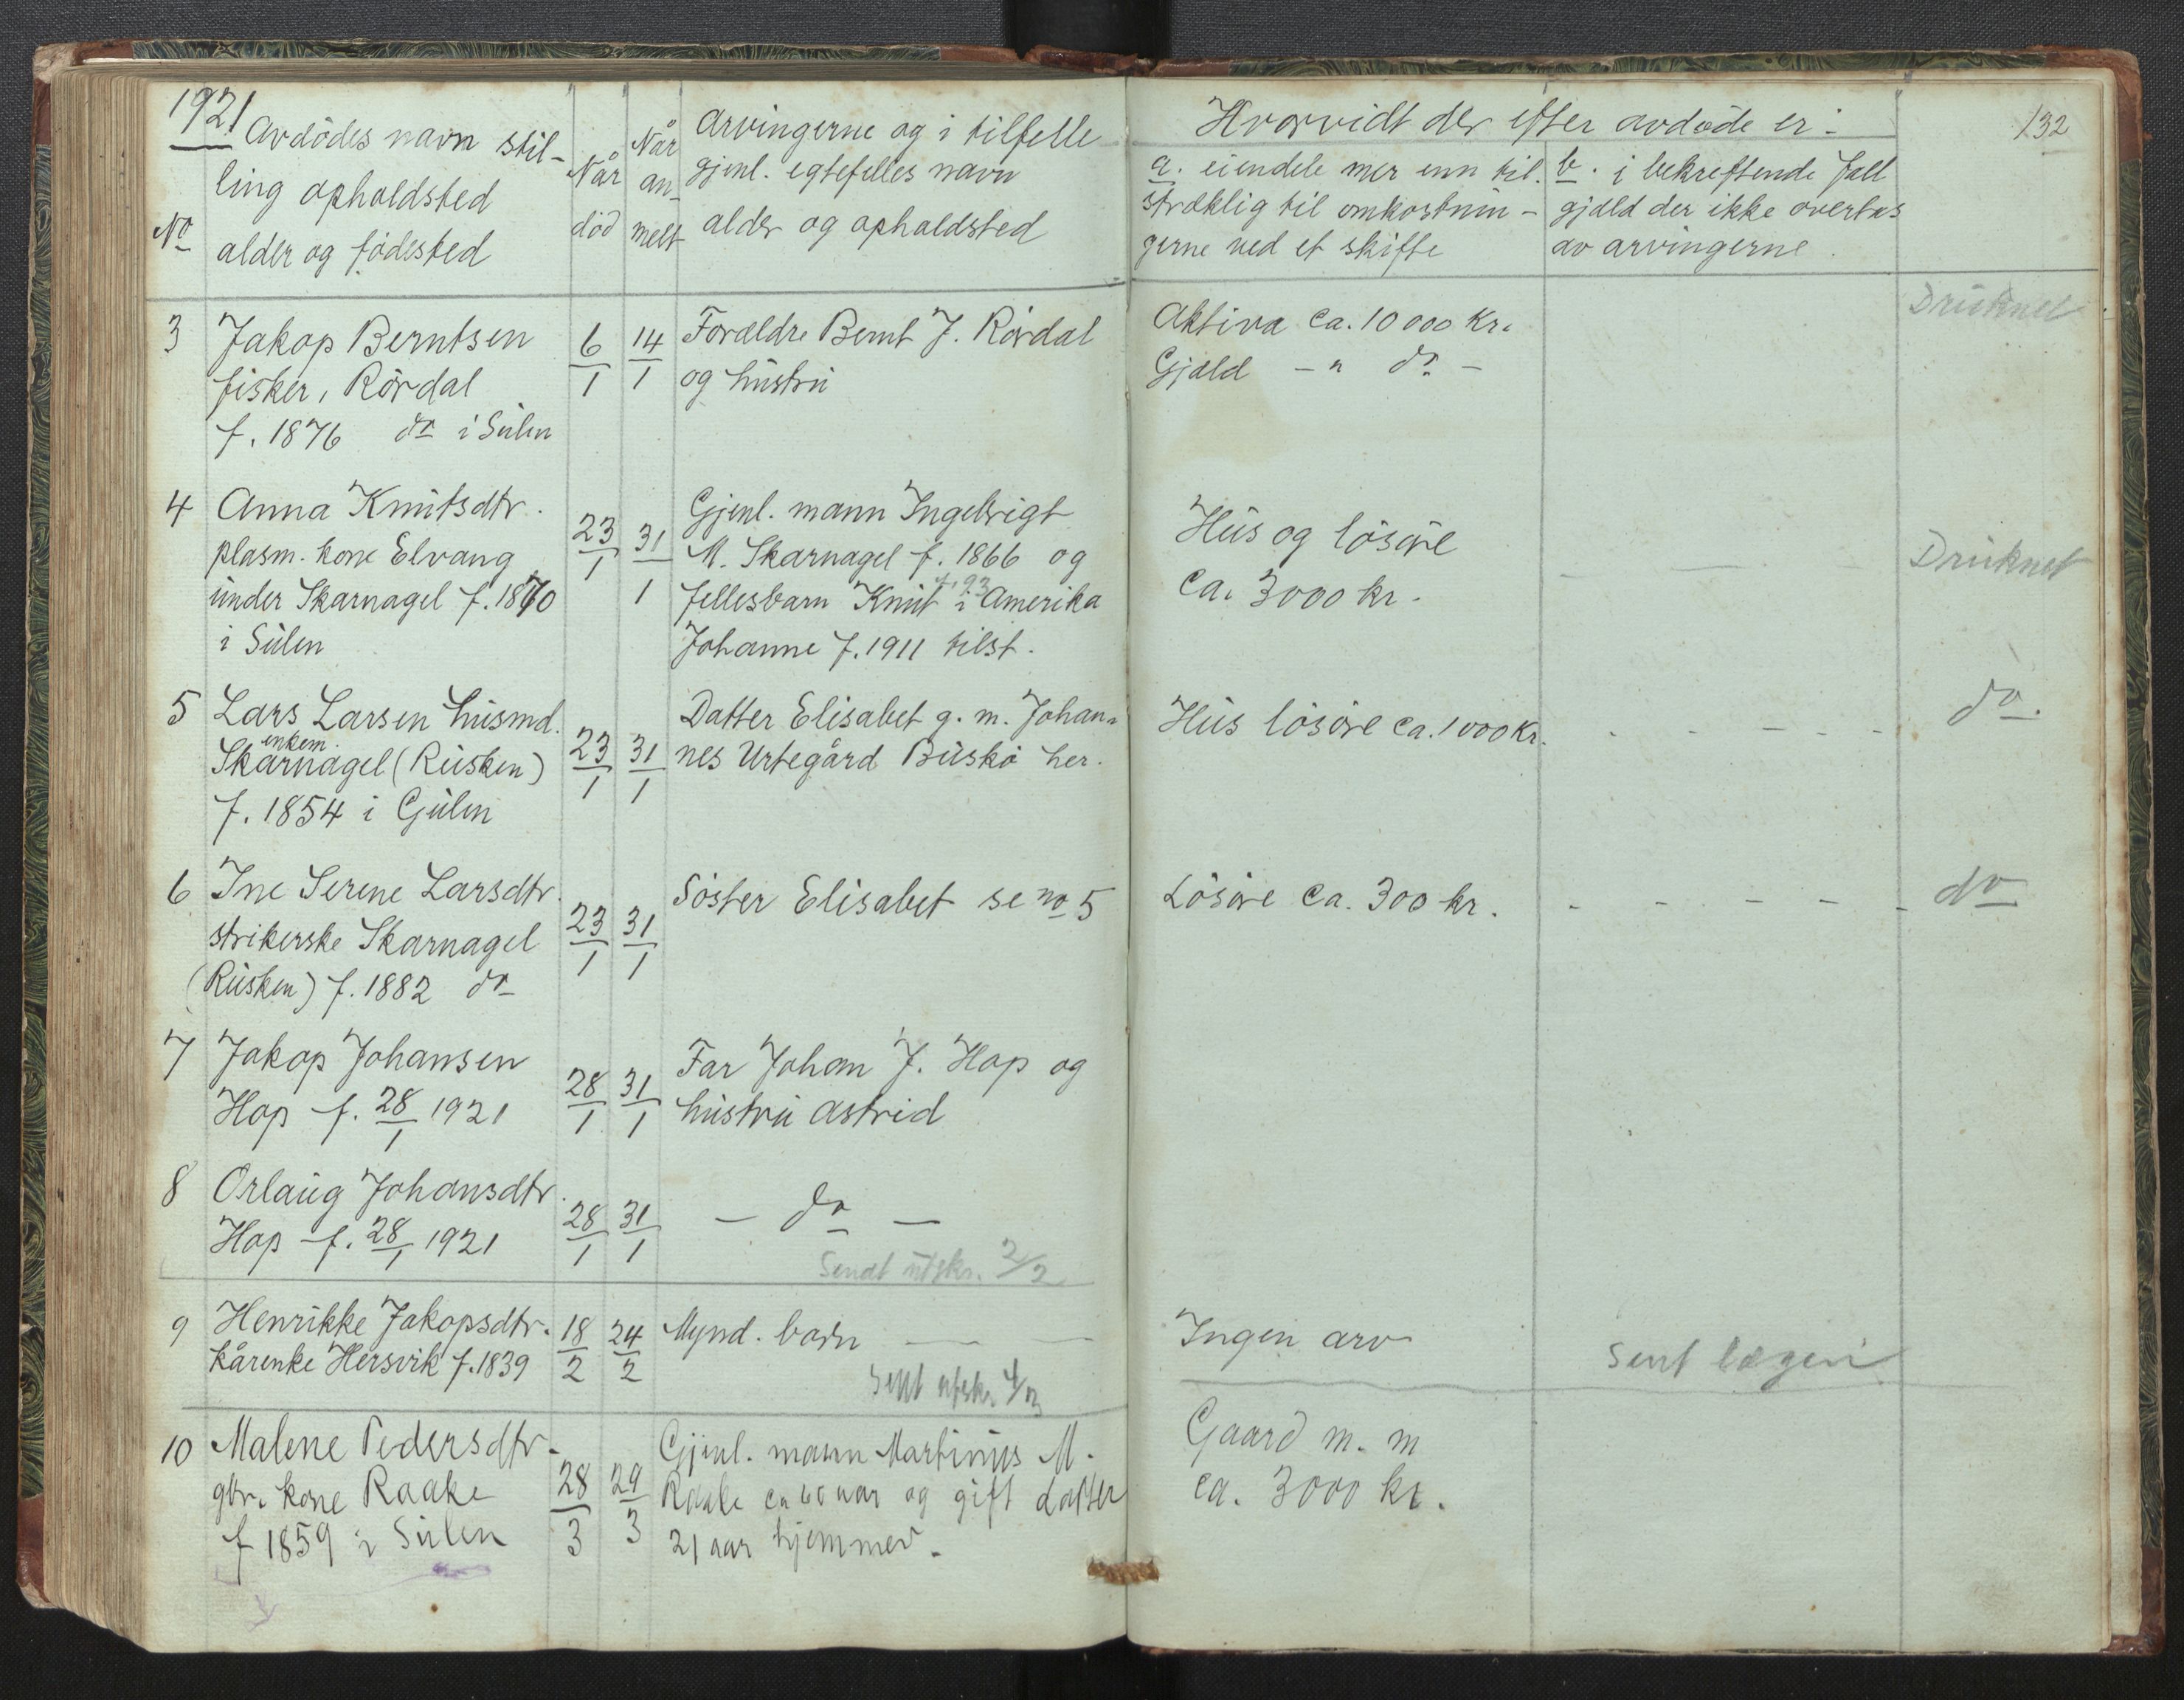 1921
Avdödes navn stil-
ling opholdsted
alder og födested
No
Når
död
Når
an-
melt
Arvingerne og i tilfelle
gjenl. egtefelles navn
alder og opholdsted
Hvorvidt der efter avdøde er:
a. eiendele mer enn til-
stræklig til omkostnin-
gerne ved et skifte
b. i bekreftende fall
gjæld der ikke overtas
av arvingerne.
132
3 Jakop Berntsen
fisker, Rördal
f. 1876 do i Sulen
6/1 14/1
Forældre Bernt J. Rördal
og hustru
Aktiva ca. 10 000 Kr.
Gjæld - " do -
Druknet
4 Anna Knutsdtr.
plasm. kone Elvang
under Skarnagel f. 1870
i Sulen
23/1 31/1
Gjenl. mann Ingebrigt
M. Skarnagel f. 1866 og
fellesbarn Knut f. 93 i Amerika
Johanne f. 1911 tilst.
Hus og lösöre
Ca. 3000 kr.
Druknet
5 Lars Larsen husmd.
enkem.
Skarnagel (Rusken)
f. 1854 i Gulen
23/1 31/1
Datter Elisabet g. m. Johan-
nes Urtegård Buskö her.
Hus lösöre ca. 1000 Kr.
- - - -
do.
6 Ine Serene Larsdtr.
strikerske Skarnagel
(Rusken) f. 1882 do
23/1 31/1
Söster Elisabet se no 5
Lösöre ca. 300 kr.
- - - - -
do
7 Jakop Johansen
Hop f. 28/1 1921
28/1 31/1
Far Johan J. Hop og
hustru Astrid
8 Orlaug Johansdtr.
Hop f. 28/1 1921
28/1 31/1
- do -
Sendt utskr. 2/2
9 Henrikke Jakopsdtr.
kårenke Hersvik f. 1839
18/2 24/2
Mynd. barn
Sent utskr. 4/3
Ingen arv
Sent lægen
10 Malene Pedersdtr.
gbr. kone Raake
f 1859 i Sulen
28/3 29/3
Gjenl. mann Martinus M.
Raake ca 60 aar og gift datter
21 aar hjemmev.
Gaard m. m
ca. 3000 kr.